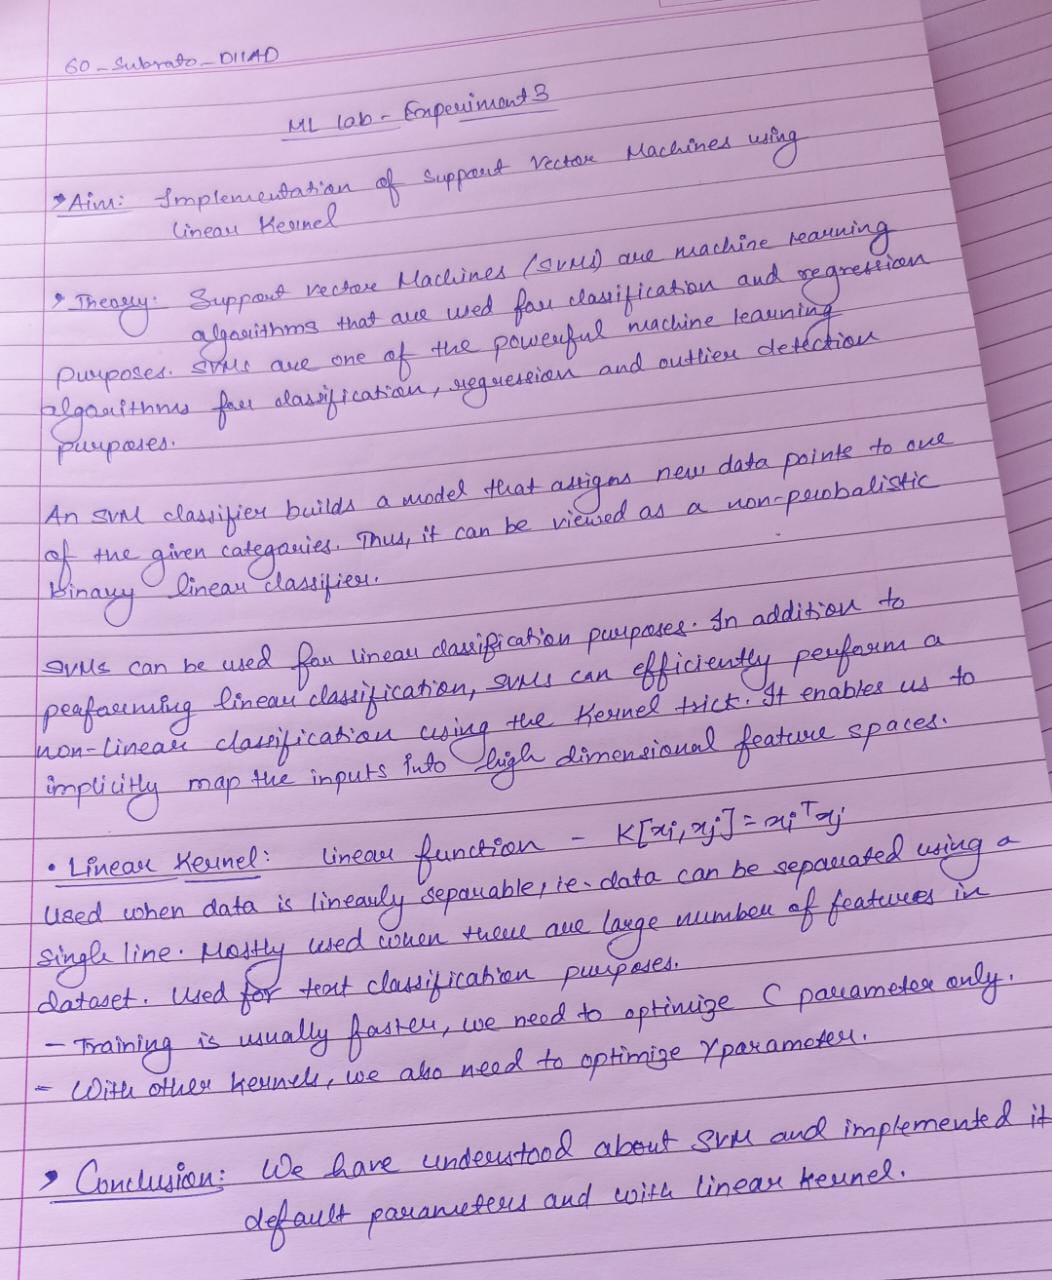 60-Subrato-D11AD
ML Lab - Experiment 3
Aim: Implementation of Support Vector Machines using
Linear Kernel
Theory: Support Vector Machines (SVMs) are machine learning
algorithms that are used for classification and regression
purposes. SVMs are one of the powerful machine learning
algorithms for classification, regression and outlier detection
purposes.
An SVM classifier builds a model that assigns new data points to one
of the given categories. Thus, it can be viewed as a non-probalistic
binary linear classifier.
SVMs can be used for linear classification purposes. In addition to
performing linear classification, SVMs can efficiently perform a
non-linear classification using the Kernel trick. It enables us to
implicitly map the inputs into high dimensional feature spaces.
• Linear Kernel: linear function - K[xi, xj] = xiᵀxj
Used when data is linearly separable, ie. data can be separated using a
single line. Mostly used when there are large number of features in
dataset. Used for text classification purposes.
- Training is usually faster, we need to optimize C parameter only.
- With other kernels, we also need to optimize γ parameter.
Conclusion: We have understood about SVM and implemented it
default parameters and with linear kernel.